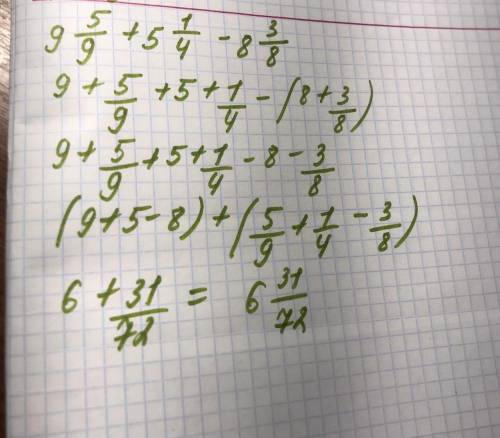 9 5/9 + 5 1/4 - 8 3/8
9 + 5/9 + 5 + 1/4 - (8 + 3/8)
9 + 5/9 + 5 + 1/4 - 8 - 3/8
(9 + 5 - 8) + (5/9 + 1/4 - 3/8)
6 + 31/72 = 6 31/72